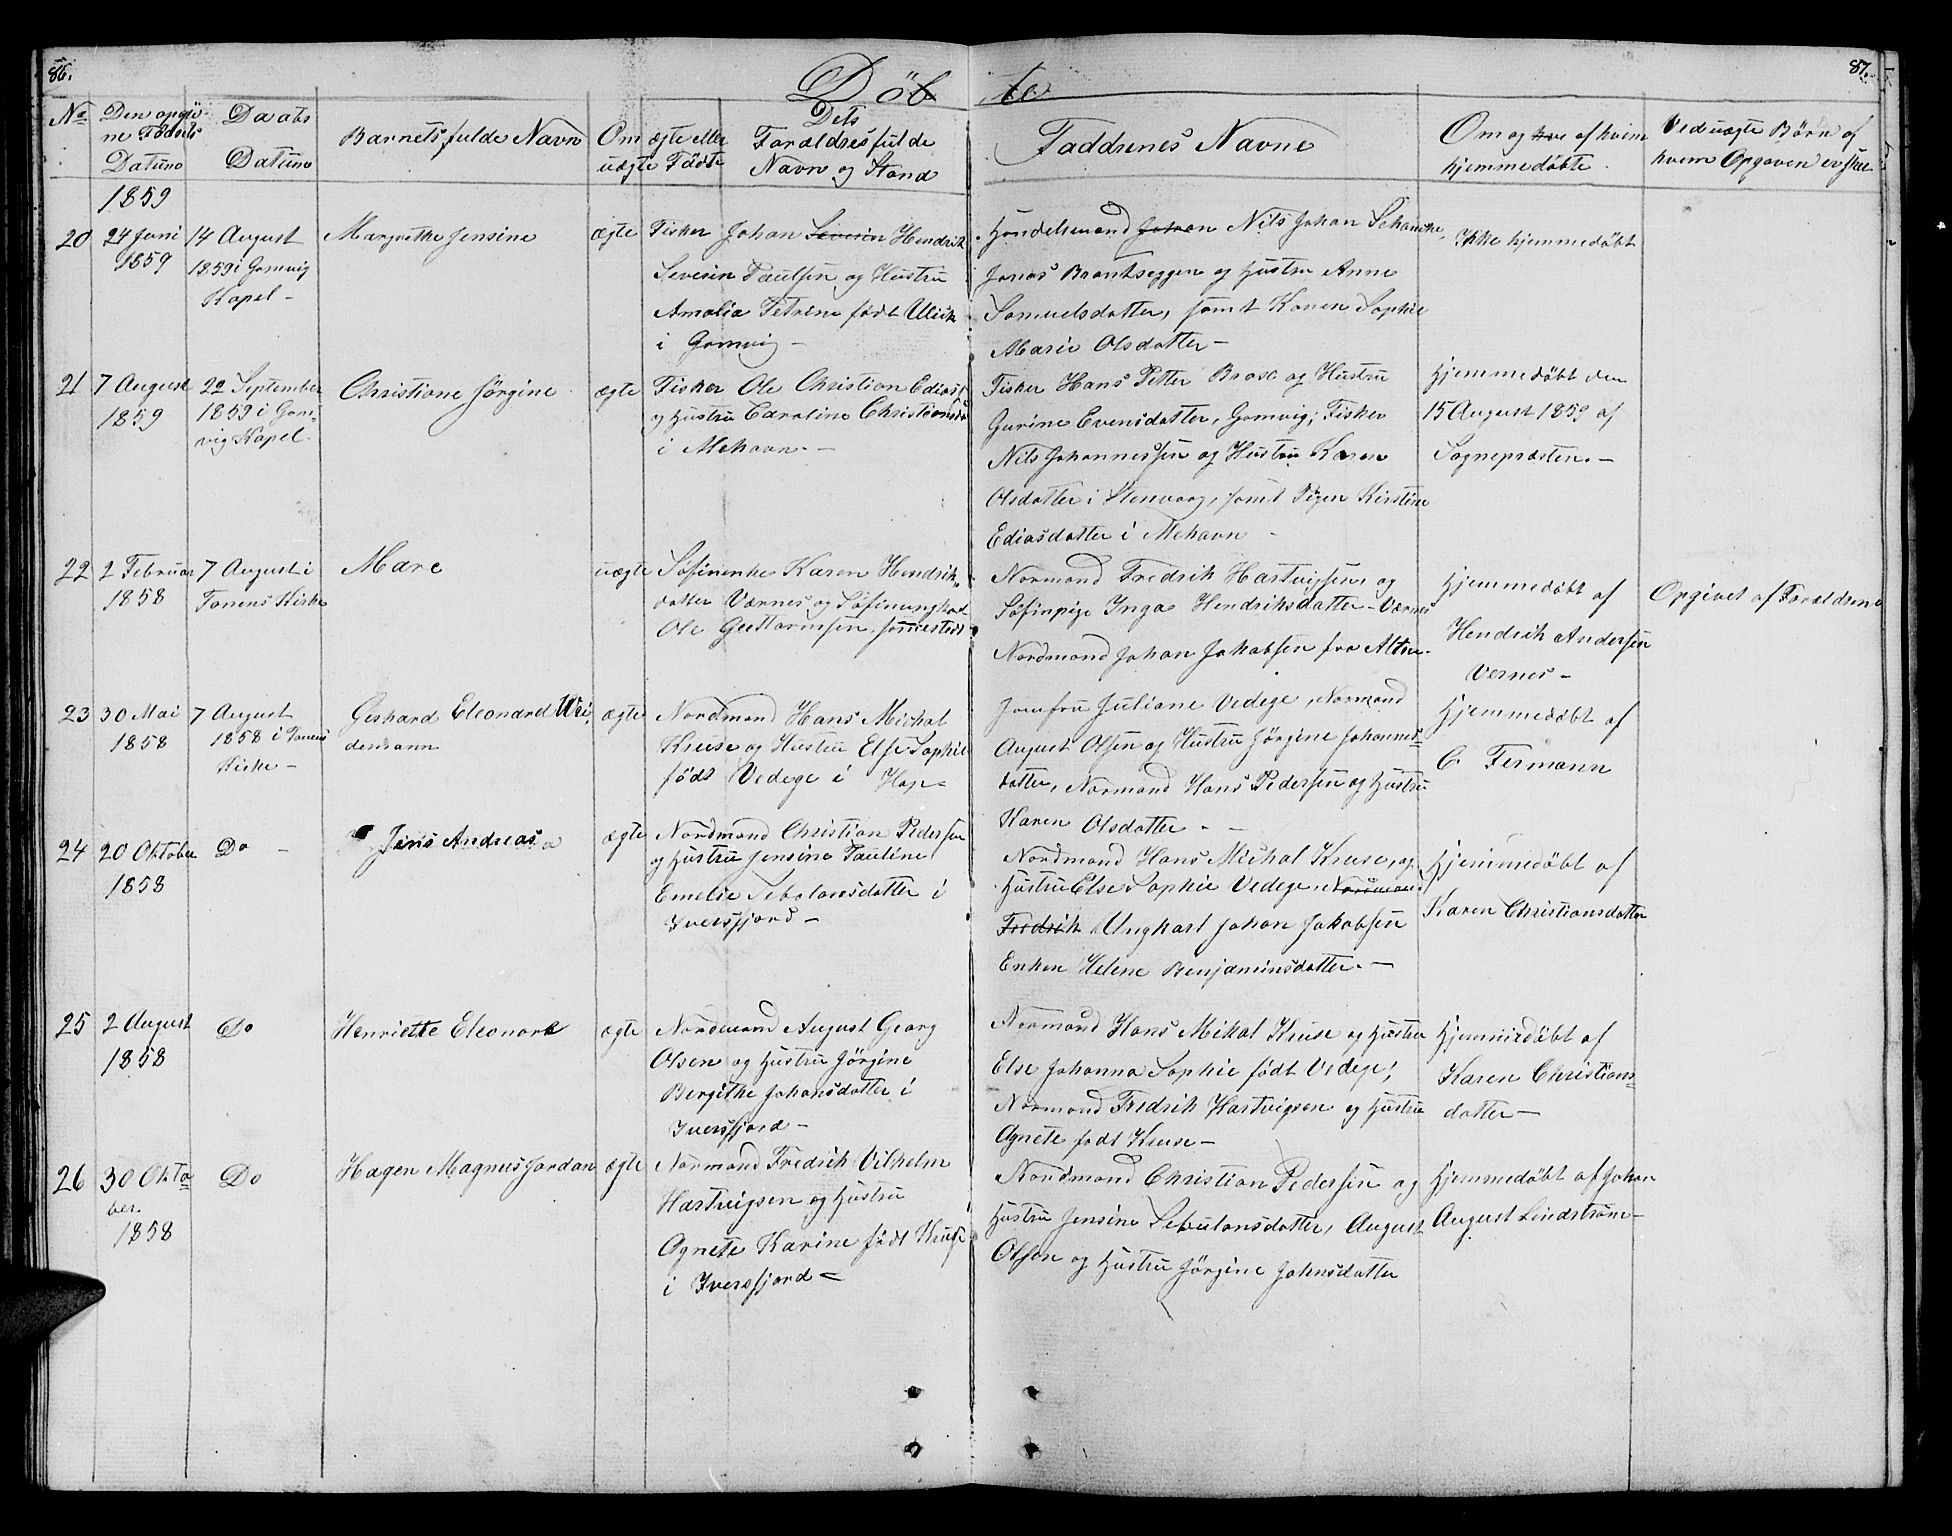 86.
87.
Döbte
No
Den opgivne Födsels Datum
Daabs Datum
Barnets fulde Navn
Om ægte eller uægte Födte
Dets Foraldres fulde Navn og Stand
Faddrenes Navne
Om og af hvem hjemmedöbte
Ved uægte Börn af hvem Opgaven er skee
1859
20
24 Juni
1859
14 August
1859 i Gamvig
Kapel -
Margrethe Jensine
ægte
Fisker Johan Severin Hendrik
Severin Paulsen og Hustru
Amalia Petrine födt Ulrik
i Gamvig -
Handelsmand Johan Nils Johan Schancke,
Jonas Brantseggen og Hustru Anne
Samuelsdatter, samt Karen Sophie
Marie Olsdatter -
Ikke hjemmedöbt
21
7 August
1859
22 September
1859 i Gam-
vig Kapel.
Christiane Jörgine
ægte
Fisker Ole Christian Edias
og Hustru Caroline Christiansd
i Mehavn. -
Fisker Hans Petter Brose og Hustru
Gurine Evensdatter, Gamvig; Fisker
Nils Johannessen og Hustru Karen
Olsdatter i Stenvaag, samt Pigen Kirstine
Ediasdatter i Mehavn -
Hjemmedöbt den
15 August 1859 af
Sognepræsten. -
22
2 Februar
1858
7 August i
Tanens Kirke
Mare
uægte
Söfinenke Karen Hendrik-
datter Værnes og Söfinungkarl
Ole
Normand Fredrik Hartvigsen og
Söfinpige Inga Hendriksdatter - Værnes
Nordmand Johan Jakobsen fra Alten -
Hjemmedöbt af
Hendrik Andersen
Vernes -
Opgivet af Foraldrene
23
30 Mai
1858
7 August
1858 i Tanens
Kirke -
Gerhard Eleonard Wei
demann
ægte
Nordmand Hans Michal
Kruse og Hustru Else Sophie
födt Vedege i Hop -
Jomfru Juliane Vedege, Normand
August Olsen og Hustru Jörgine Johannes-
datter, Normand Hans Pedersen og Hustru
Karen Olsdatter - -
Hjemmedöbt af
C Fermann
24
20 Oktober
1858
Do -
Jens Andreas
ægte
Nordmand Christian Pedersen
og Hustru Jensine Pauline
Emelie Sebulonsdatter i
Iversfjord -
Nordmand Hans Michal Kruse, og
Hustru Else Sophie Vedege, Nordman
Fredrik Ungkarl Johan Jakobsen
Enken Helene Benjaminsdatter. -
Hjemmedöbt af
Karen Christiansdatter
25
2 August
1858
Do
Henriette Eleonore
ægte
Nordmand August Georg
Olsen og Hustru Jörgine
Bergithe Johansdatter i
Iversfjord -
Normand Hans Mikal Kruse og Hustru
Else Johanna Sophie födt Vedege;
Normand Fredrik Hartvigsen og Hustru
Agnete födt Kruse -
Hjemmedöbt af
Karen Christians-
datter -
26
30 Okto-
ber
1858
Do
Hagen Magnus Jordan
ægte
Normand Fredrik Vilhelm
Hartvigsen og Hustru
Agnete Karine födt Kruse
i Iversfjord -
Nordmand Christian Pedersen og
Hustru Jensine Sebulonsdatter, August
Olsen og Hustru Jörgine Johnsdatter
Hjemmedöbt af Johan
August Lindström -